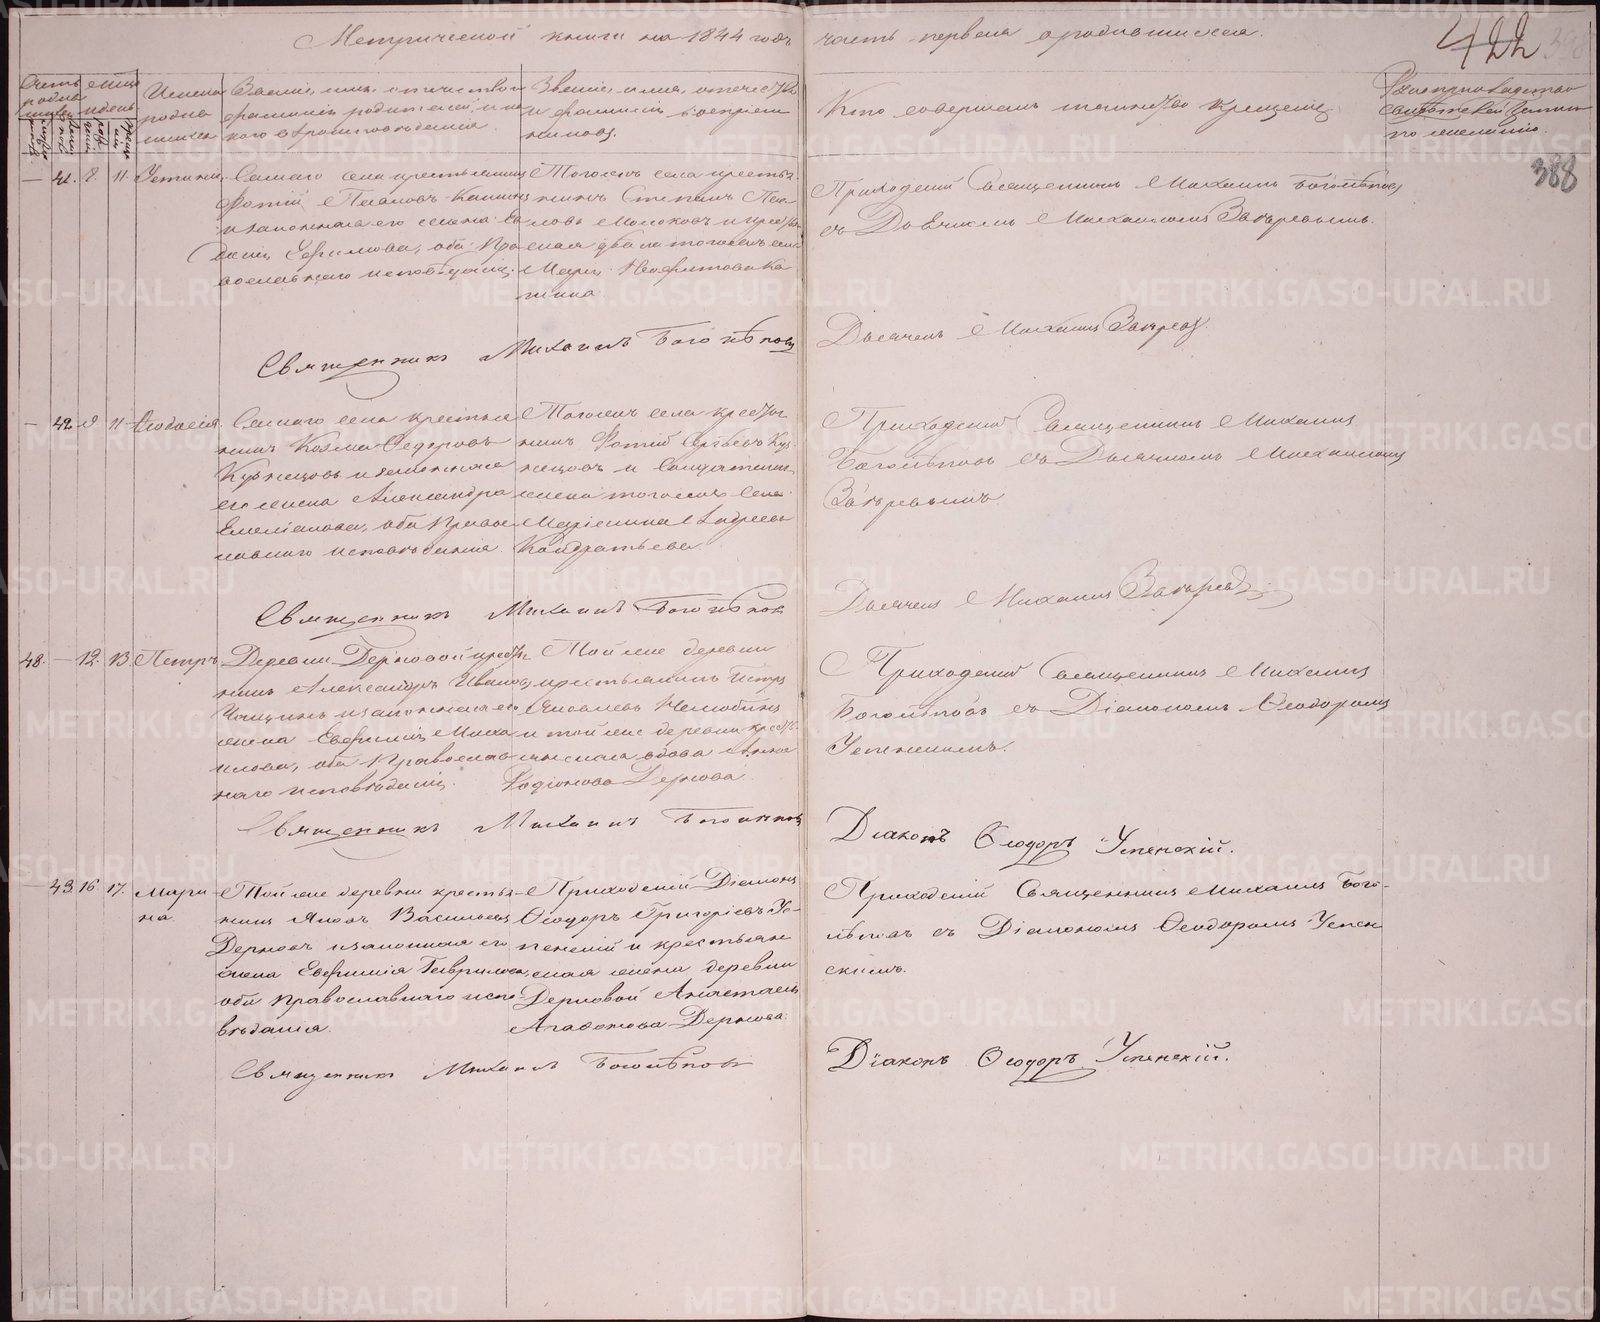 Метрической книги на 1844 годъ
часть первая о родившихся.
422
388
Имена родив
шихся
Званіе, имя, отчество и
фамилія родителей, и ка
кого вѣроисповѣданія.
Званіе, имя, отечество
и фамилія воспріем
никовъ.
Кто совершалъ таинство крещенія
по желанію.
— 41. 8. 11. Устинія
Самаго села крестьянинъ
Фотій
и законная его жена Ев
докія Ефимова, оба Пра
вославнаго исповѣданія.
Тогожъ села крестья
нинъ Степанъ Пав
ловъ
Марія Неофитова Ка
нина
Приходскій Священникъ Михаилъ Боголѣповъ
съ Дьячкомъ Михаиломъ
Дьячекъ Михаилъ
Священникъ Михаилъ Боголѣповъ
— 42. 9. 11. Ѳеодосія.
Самаго села крестья
нинъ Козма Ѳедоровъ
Кузнецовъ и законная
его жена Александра
Емеліанова, оба Право
славнаго исповѣданія.
Тогожъ села крестья
нинъ Фотій Куз
нецовъ и Солдатская
жена тогожъ села
Андреева
Кондратьева
Приходскій Священникъ Михаилъ
Боголѣповъ съ Дьячкомъ Михаиломъ
Дьячекъ Михаилъ
Священникъ Михаилъ Боголѣповъ
48. — 12. 13. Петръ
Деревни Дерновой крестья
нинъ Александръ Ивановъ
и законная его
жена Евфимія Михаи
лова, оба Православ
наго исповѣданія.
Той же деревни
крестьянинъ Петръ
Яковлевъ
и той же деревни кресть
янская вдова Анна
Родіонова Дернова.
Приходскій Священникъ Михаилъ
Боголѣповъ съ Діакономъ Ѳеодоромъ
Успенскимъ.
Священникъ Михаилъ Боголѣповъ
Діаконъ Ѳеодоръ Успенскій.
— 43. 16. 17. Мари
на.
Той же деревни крестья
нинъ Яковъ Васильевъ
Дерновъ и законная его
жена Евфимія Гаврилова,
оба Православнаго испо
вѣданія.
Приходскій Діаконъ
Ѳеодоръ Григоріевъ Ус-
пенскій и крестьян
ская жена деревни
Дерновой Анастасія
Агафонова Дернова.
Приходскій Священникъ Михаилъ Бого-
лѣповъ съ Діакономъ Ѳеодоромъ Успен
скимъ.
Священникъ Михаилъ Боголѣповъ
Діаконъ Ѳеодоръ Успенскій.
METRIKI.GASO-URAL.RU